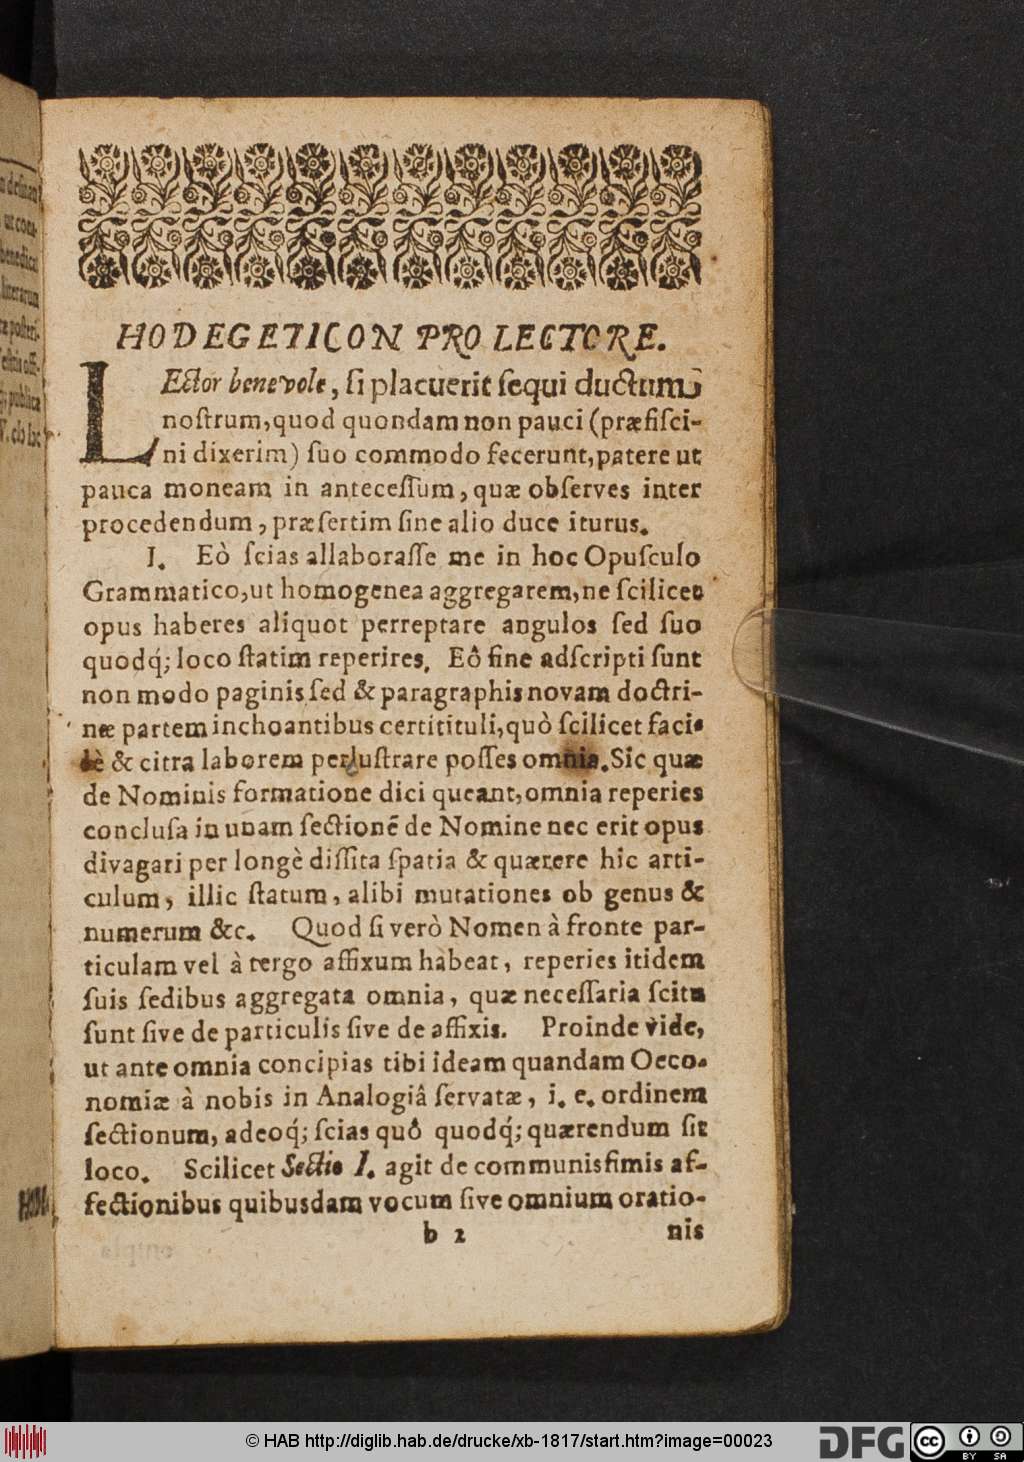 HODEGETICON PRO LECTORE.
LEctor benevole, ſi placuerit ſequi ductum
noſtrum, quod quondam non pauci (præfiſci-
ni dixerim) ſuo commodo fecerunt, patere ut
pauca moneam in anteceſſum, quæ obſerves inter
procedendum, præſertim ſine alio duce iturus.
I. Eò ſcias allaboraſſe me in hoc Opuſculo
Grammatico, ut homogenea aggregarem, ne ſcilicet
opus haberes aliquot perreptare angulos ſed ſuo
quodq́; loco ſtatim reperires. Eô fine adſcripti ſunt
non modo paginis ſed & paragraphis novam doctri-
næ partem inchoantibus certi tituli, quò ſcilicet faci-
lè & citra laborem perluſtrare poſſes omnia. Sic quæ
de Nominis formatione dici queant, omnia reperies
concluſa in unam ſectionẽ de Nomine nec erit opus
divagari per longè diſſita ſpatia & quærere hîc arti-
culum, illic ſtatum, alibi mutationes ob genus &
numerum &c. Quod ſi verò Nomen à fronte par-
ticulam vel à tergo affixum habeat, reperies itidem
ſuis ſedibus aggregata omnia, quæ neceſſaria ſcitu
ſunt ſive de particulis ſive de affixis. Proinde vide,
ut ante omnia concipias tibi ideam quandam Oeco-
nomiæ à nobis in Analogiâ ſervatæ, i. e. ordinem
ſectionum, adeoq́; ſcias quô quodq́; quærendum ſit
loco. Scilicet Sectio I. agit de communisſimis af-
fectionibus quibusdam vocum ſive omnium oratio-
b 2 nis
© HAB http://diglib.hab.de/drucke/xb-1817/start.htm?image=00023
DFG
cc BY SA